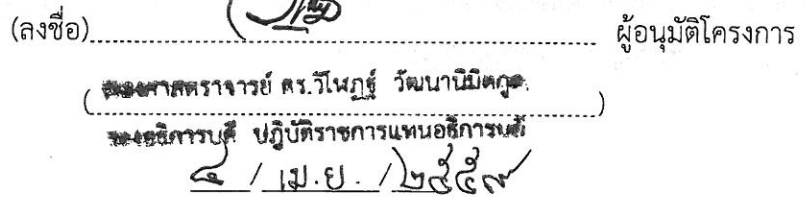 (ลงชื่อ)........................................ ผู้อนุมัติโครงการ
(รองศาสตราจารย์ ดร.วิไหภฐ์ วัฒนานิมิตกูล)
รองอธิการบดี ปฏิบัติราชการแทนอธิการบดี
๔ / เม.ย. / ๒๕๕๙